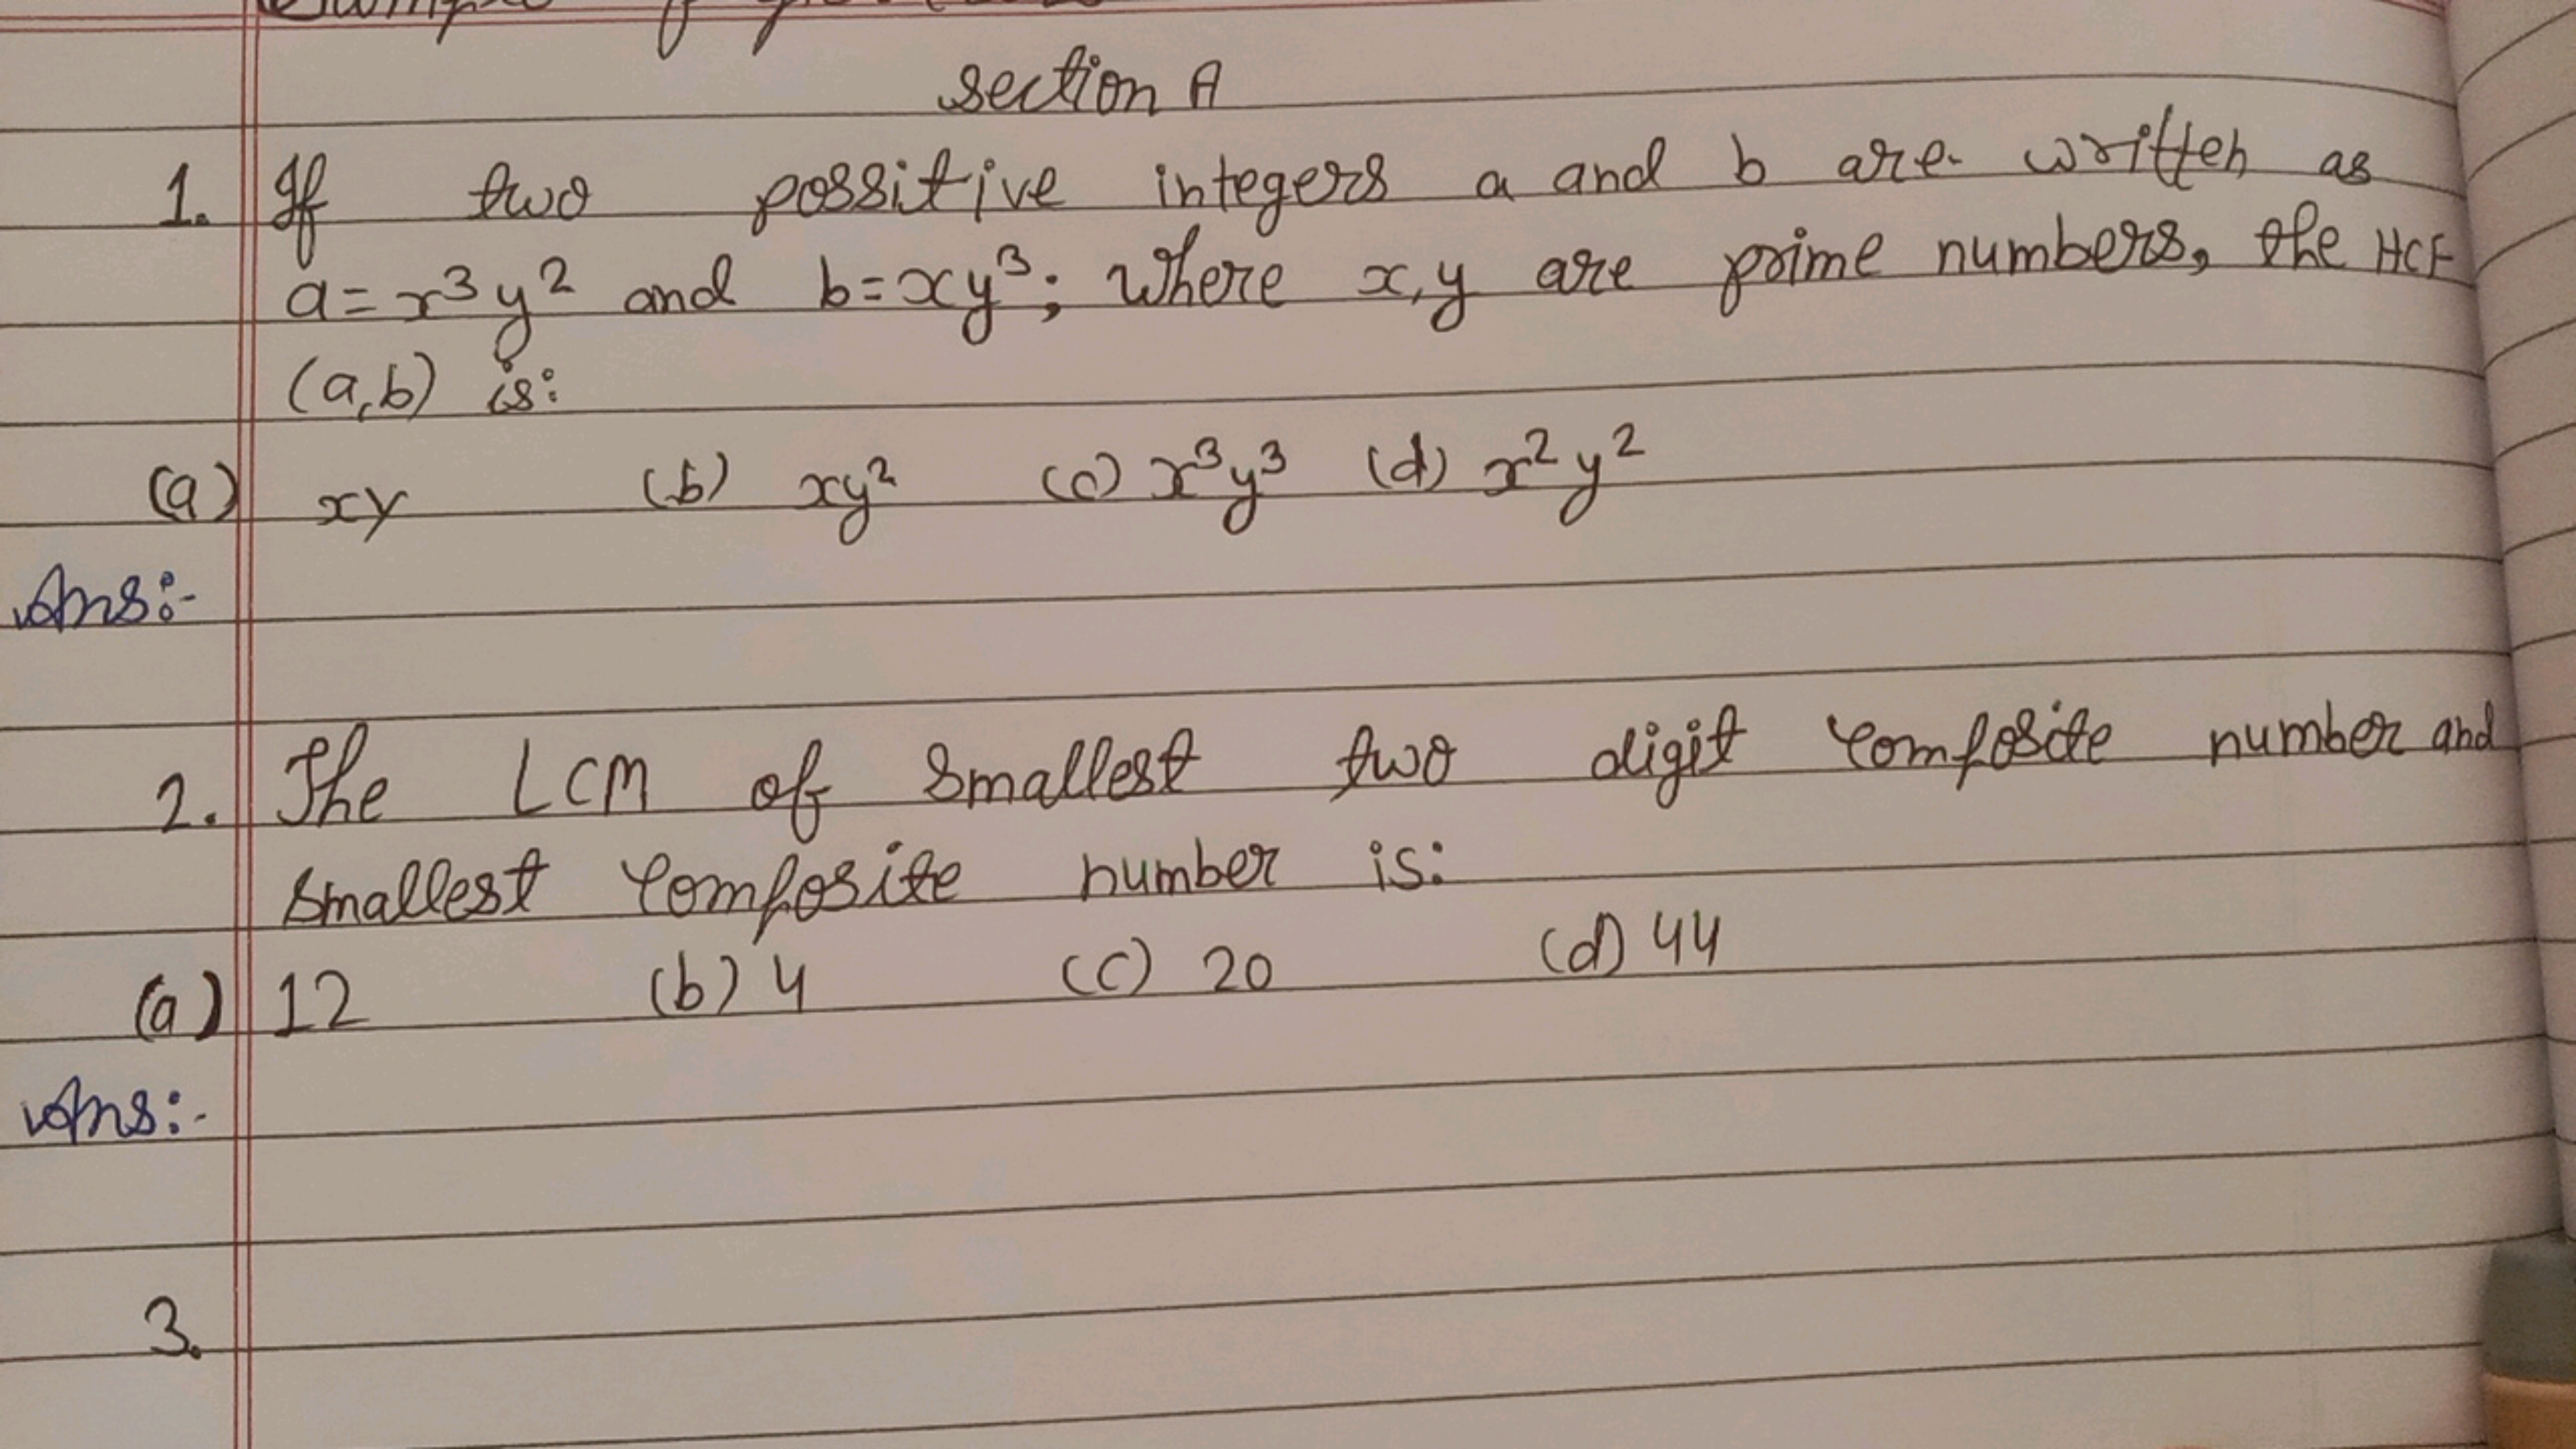 Section A
1. If two possitive integers a and b are written as
a = x³y² and b = xy³; where x, y are prime numbers, the HCF
(a,b) is:
(a) xy (b) xy² (c) x³y³ (d) x²y²
Ans:-
2. The LCM of smallest two digit composite number and
smallest composite number is:
(a) 12 (b) 4 (c) 20 (d) 44
Ans:-
3.